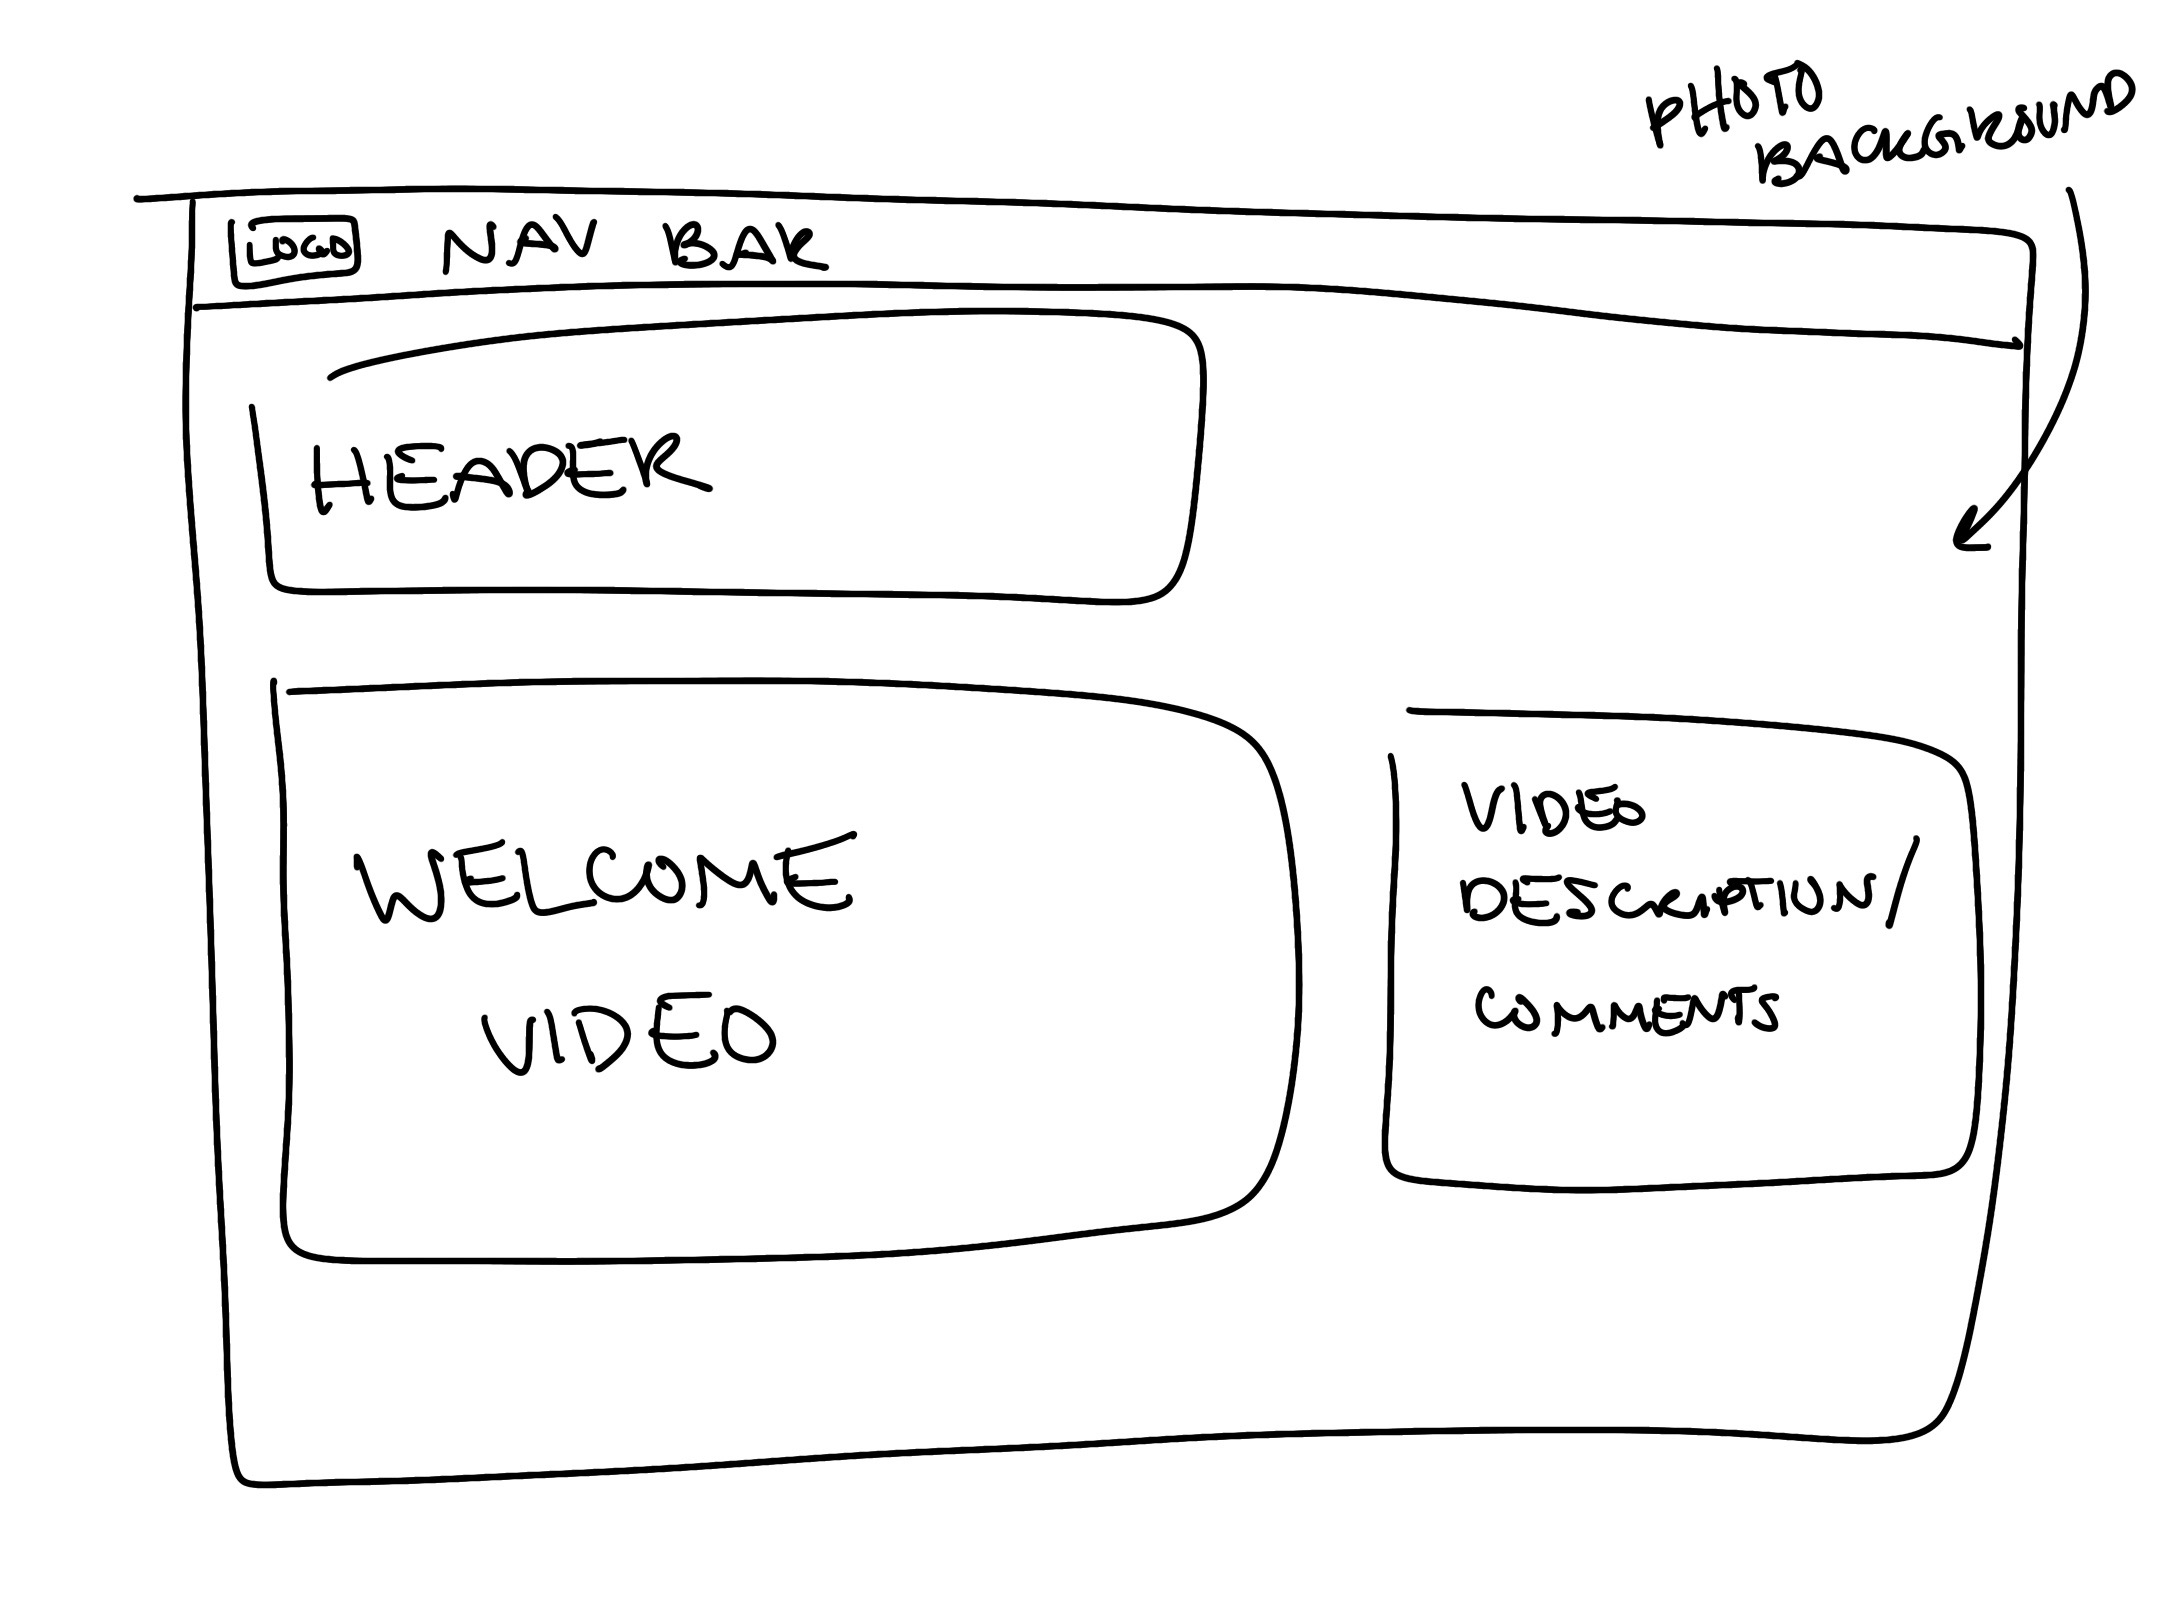 PHOTO
BACKGROUND
LOGO NAV BAR
HEADER
WELCOME
VIDEO
VIDEO
DESCRIPTION/
COMMENTS